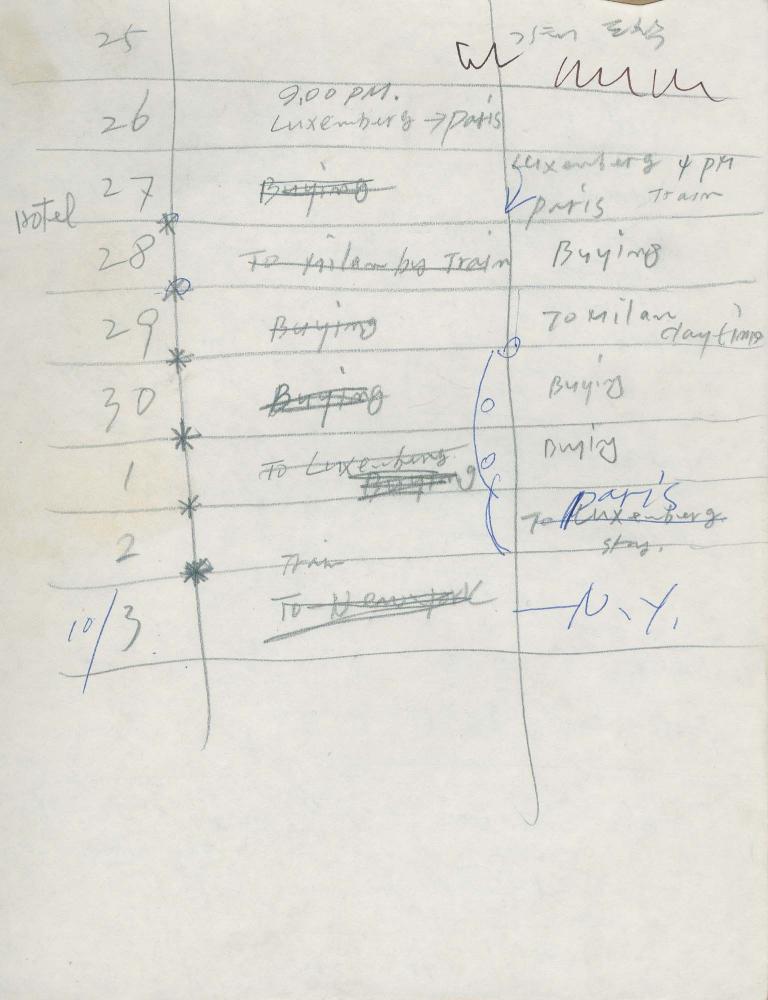 25
26
9,00 PM.
Luxemberg → Paris
Luxemberg 4 PM
27
Buying
Train
Paris
Hotel
28
To Milan by Train
Buying
29
Buying
To Milan
daytime
30
Buying
Buying
1
To Luxemberg
Buying
Buying
Paris
To Luxemberg
stay.
2
Train
10/3
To Newyork
N.Y.